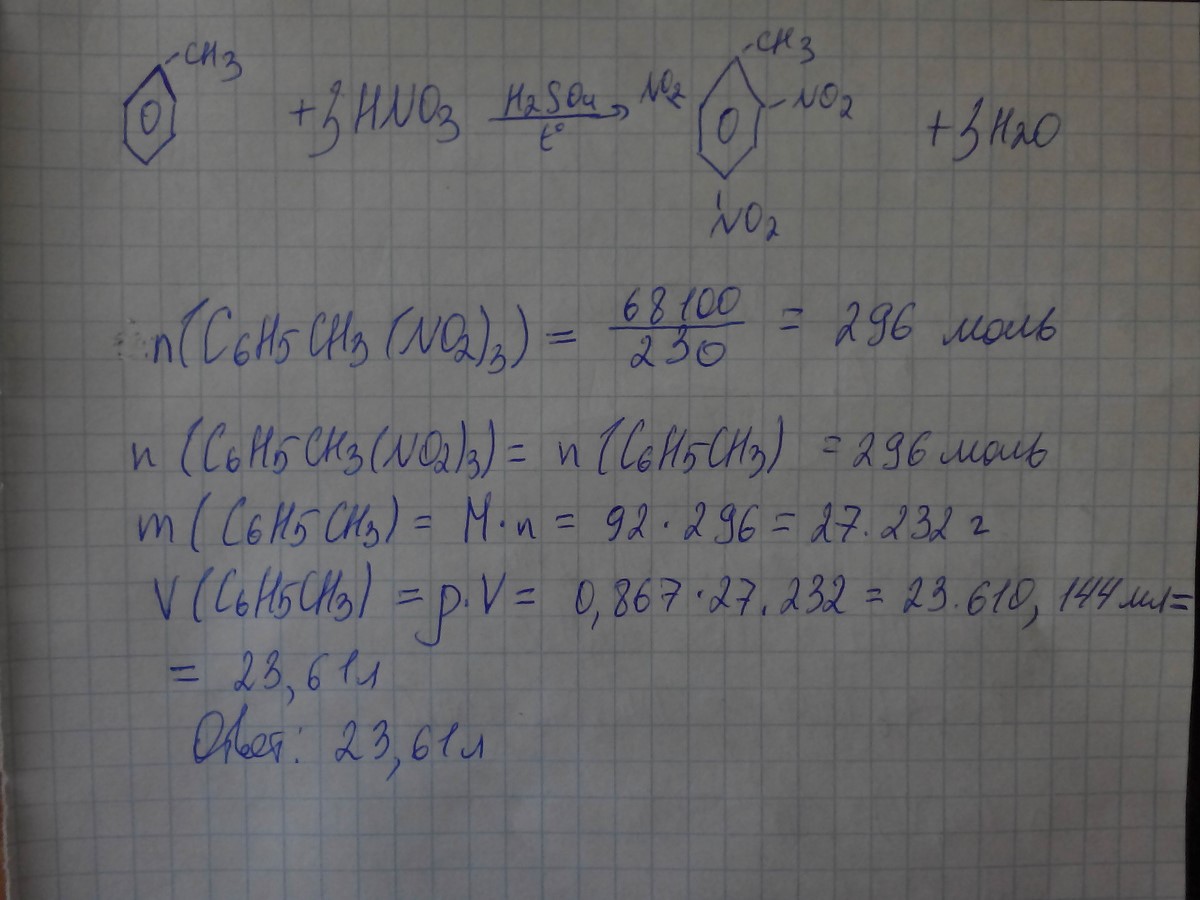 CH3 + 3HNO3 H2SO4 t° → NO2 CH3 NO2 NO2 + 3H2O
n(C6H5CH3(NO2)3) = 68100 / 230 = 296 моль
n(C6H5CH3(NO2)3) = n(C6H5CH3) = 296 моль
m(C6H5CH3) = M·n = 92·296 = 27.232 г
V(C6H5CH3) = p·V = 0,867·27.232 = 23.610,144 мл =
= 23,61л
Ответ: 23,61л